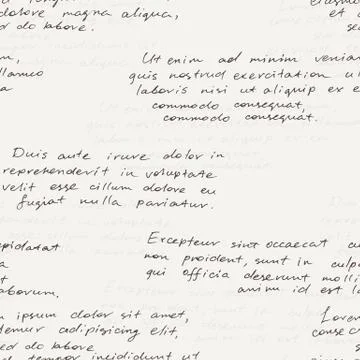 dolore magna aliqua,
ed do labore.
Ut enim ad minim veniam
quis nostrud exercitation ul
laboris nisi ut aliquip ex e
commodo consequat,
commodo consequat.
llamco
Duis aute irure dolor in
reprehenderit in voluptate
velit esse cillum dolore eu
fugiat nulla pariatur.
Excepteur sint occaecat cu
non proident, sunt in culpa
qui officia deserunt molli
anim id est l
cupidatat
aborum.
m ipsum dolor sit amet,
temur adipisicing elit,
ed do labore
d tempor incididunt ut
Lorem